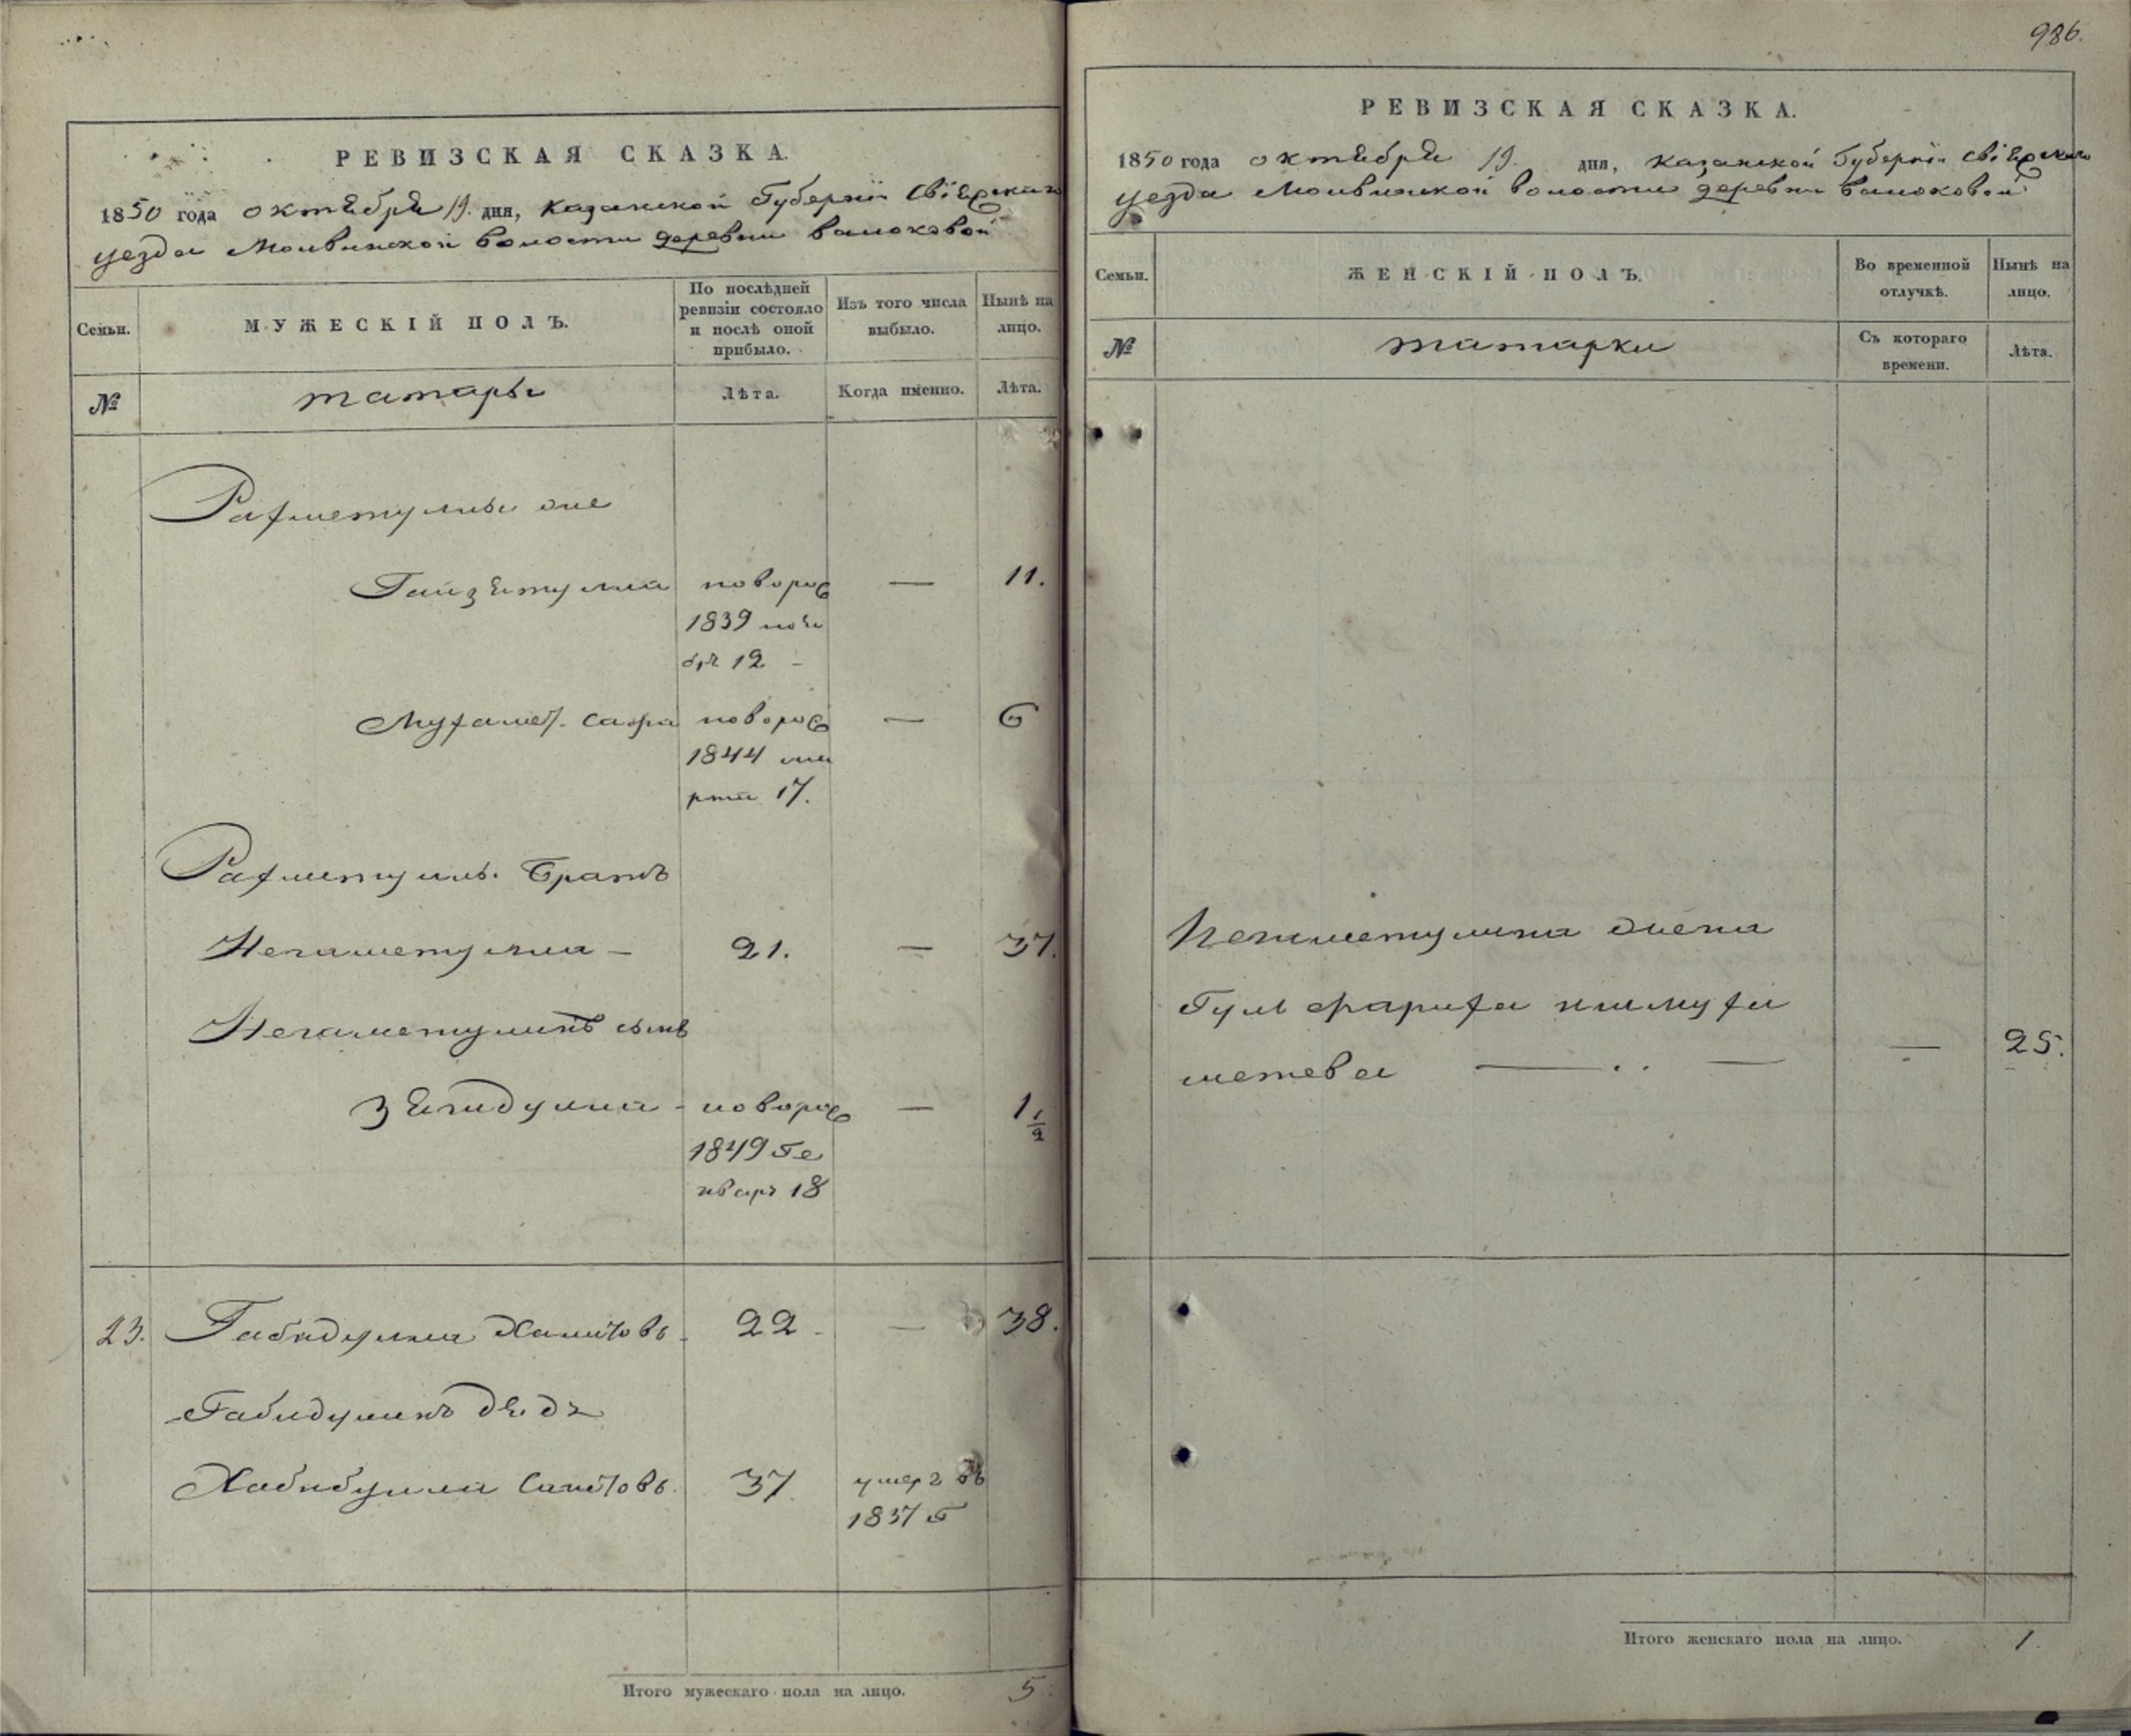 РЕВИЗСКАЯ СКАЗКА.
1850 года октября 19. дня, казанской Губерніи Свіяжскаго
уезда Молвинской волости деревни
Семьи.
МУЖЕСКІЙ ПОЛЪ.
По послѣдней
ревизіи состояло
и послѣ оной
прибыло.
Изъ того числа
выбыло.
Нынѣ на
лицо.
№
татары
Лѣта.
Когда именно.
Лѣта.
Рахметуллы
Гайзетулла новорож — 11.
1839 ноя
бря 12 –
Мухамет. сафа новорож — 6
1844 ма
рта 17.
Рахметулы. братъ
Негаметулла – 21. — 37.
Негаметулинъ сынъ
новорож — 1 1/2
1849 Ге
нваря 18
23. Габидулла Хамитовъ 22 — 38.
Габидулинъ дядя
Хабибулла Саитовъ. 37 умеръ въ
1837 г
Итого мужескаго пола на лицо. 5.
986.
РЕВИЗСКАЯ СКАЗКА.
1850 года октября 19. дня, казанской Губерніи Свіяжскаго
уезда Молвинской волости деревни
Семьи.
ЖЕНСКІЙ ПОЛЪ.
Во временной
отлучкѣ.
Нынѣ на
лицо.
№
татарки
Съ котораго
времени.
Лѣта.
Негаметулина жена
Гуль фариха ишмуха
метева — — — 25.
Итого женскаго пола на лицо. 1.